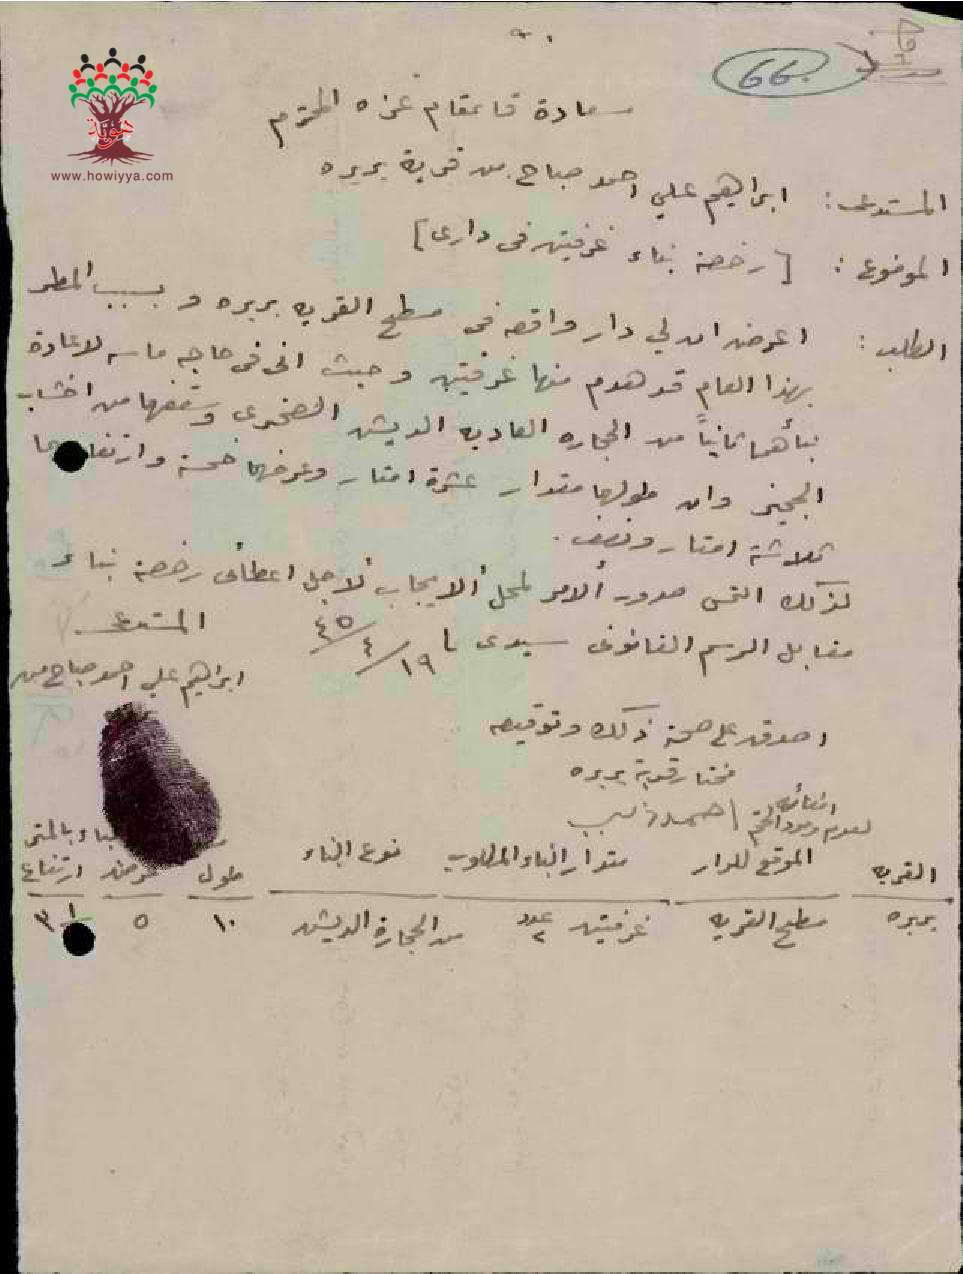 66
سعادة قائمقام غزه المحترم
المستدعي : ابراهيم علي احمد صباح من قرية بربره
الموضوع : [رخصة بناء غرفتين في داري]
الطلب : اعرض ان لي دار واقعه في مسطح القريه بربره و بسبب المطر
بهذا العام قد هدم منها غرفتين وحيث اني في حاجه ماسه لاعادة
بنأهما ثانياً من الحجاره العاديه الدبش الصخري وسقفها من اخشاب
الجميز وان طولها مقدار عشرة امتار وعرضها خمسة وارتفاعها
ثلاثة امتار ونصف .
لذلك التمس صدور ألامر لمحل ألايجاب لاجل اعطائي رخصة بناء
مقابل الرسم القانوني سيدي ١٩/٤/٤٥
المستدعي
ابراهيم علي احمد صباح من
بربره
اصدق على صحة ذلك وتوقيعه
مختار قرية بربره
لعدم وجود الختم
القريه الموقع للدار مقدار البناء المطلوب نوع البناء طول عرض ارتفاع
البناء بالمتر
بربره مسطح القريه غرفتين عدد ٢ من الحجارة الدبش ١٠ ٥ ٣ ١/٢
هوية
www.howiyya.com